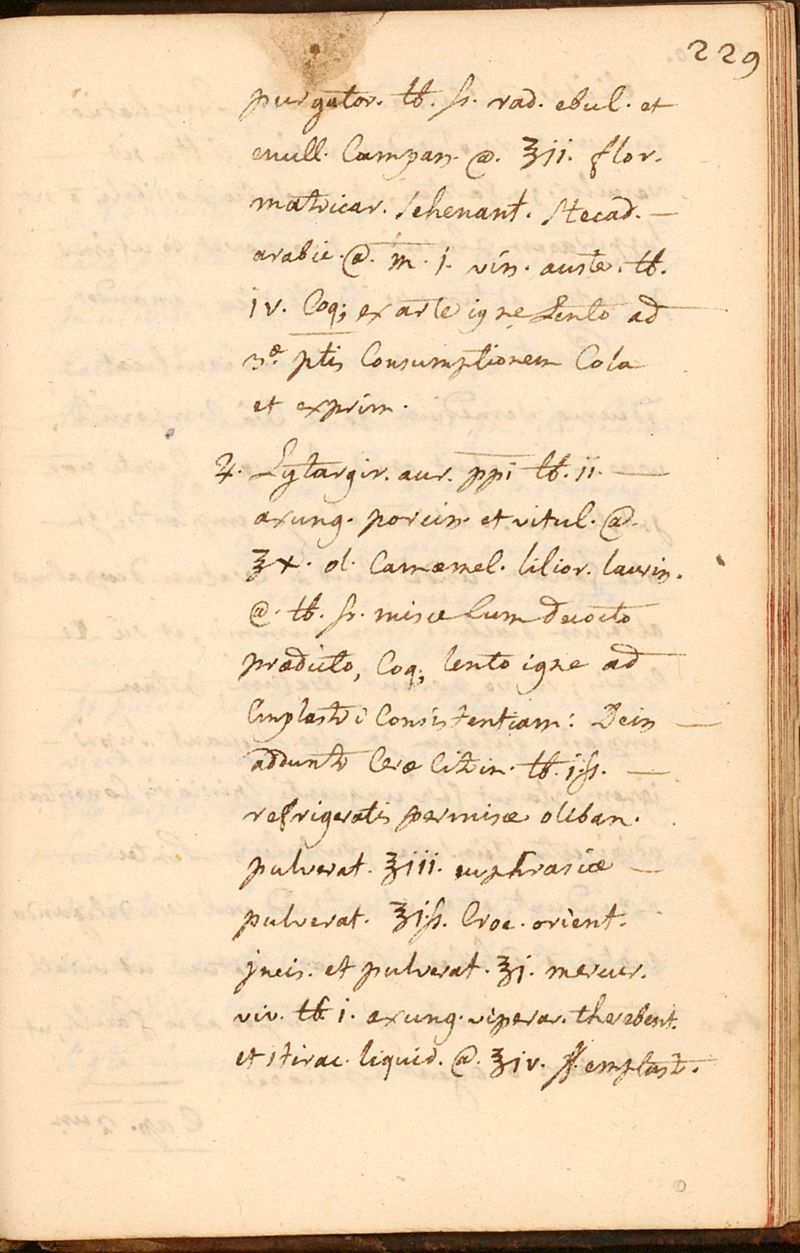 229
purgator. ℔. ß. rad. ebul. et
enull. Campan. @. ʒii. flor.
matricar. schenant. stecad. —
arabic. @. m. j. vin. auste. ℔.
iv. Coq; ex arte igne Lento ad
3æ. ptis Consumptionem Cola
et exprim.
♃. Lytargir. aur. ppi ℔. ii. —
axung. porcin. et vitul. @.
ʒx. ol. Camæmel. lilior. laurin.
@. ℔. ß. misce Cum decocto
prædicto, Coq; lento igne ad
Emplastri Consistentiam: Dein —
adduntr Ceræ Citrin. ℔. i.ß. —
refrigeratis permisce oliban.
pulverat. ʒiii. euphrasiæ —
pulverat. ʒiß. Croc. orient.
jncis. et pulverat. ʒj. mercur.
viv. ℔. i. axung. viperar. therebent.
et stirac. liquid. @. ʒiv. ff. emplastr.